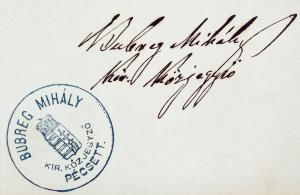 Bubreg Mihály
kir. közjegyző
BUBREG MIHÁLY
KIR. KÖZJEGYZŐ
PÉCSETT.